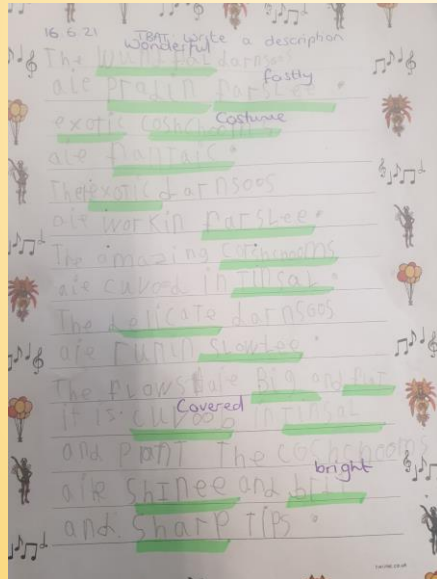 16.6.21 TBAT: write a description
wonderful
The wundful darnsoos
fastly
are pradin farslee.
Costume
exotic coshchooms
are flantaic.
The exotic darnsoos
are workin farslee.
The amazing coshchooms
are cuvod in Tinsal.
The delicate darnsoos
are runin slowlee.
The flows are Big and
Covered
it is cuvod in Tinsal
and pant The coshchooms
bright
are shinee and brit
and sharp Tips.